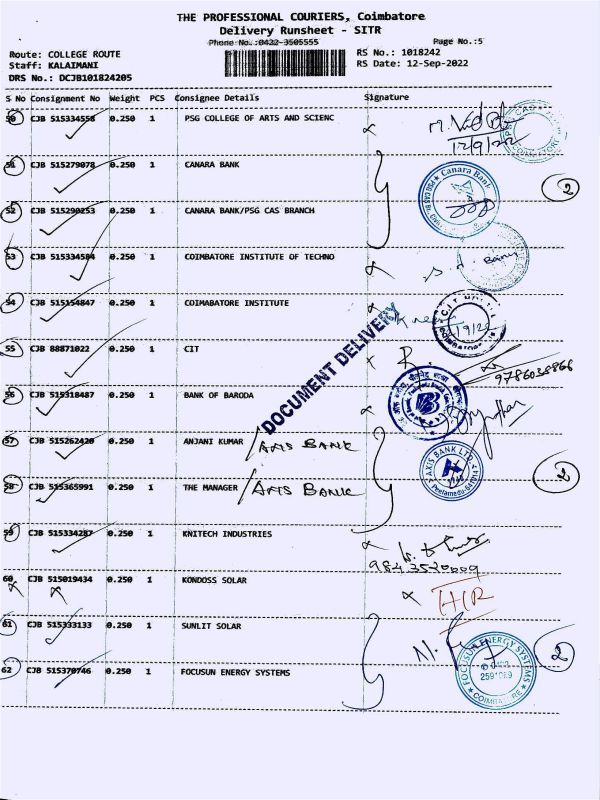 THE PROFESSIONAL COURIERS, Coimbatore
Delivery Runsheet - SITR
Phone No.:0422-3505555 Page No.:5
Route: COLLEGE ROUTE RS No.: 1018242
Staff: KALAIMANI RS Date: 12-Sep-2022
DRS No.: DCJB101824205
S No Consignment No Weight PCS Consignee Details Signature
50 CJB 515334558 0.250 1 PSG COLLEGE OF ARTS AND SCIENC
12/9/22
51 CJB 515279078 0.250 1 CANARA BANK
Canara Bank
2
52 CJB 515290253 0.250 1 CANARA BANK/PSG CAS BRANCH
53 CJB 515334584 0.250 1 COIMBATORE INSTITUTE OF TECHNO
54 CJB 515154847 0.250 1 COIMABATORE INSTITUTE
DOCUMENT DELIVERY
55 CJB 88871022 0.250 1 CIT
R
9786038866
56 CJB 515318487 0.250 1 BANK OF BARODA
57 CJB 515262420 0.250 1 ANJANI KUMAR / AXIS BANK
AXIS BANK LTD.
2
58 CJB 515365991 0.250 1 THE MANAGER / AXIS BANK
59 CJB 515334287 0.250 1 KNITECH INDUSTRIES
9843520009
60 CJB 515019434 0.250 1 KONDOSS SOLAR
61 CJB 515333133 0.250 1 SUNLIT SOLAR
2
62 CJB 515370746 0.250 1 FOCUSUN ENERGY SYSTEMS
FOCUSUN ENERGY SYSTEMS
COIMBATORE